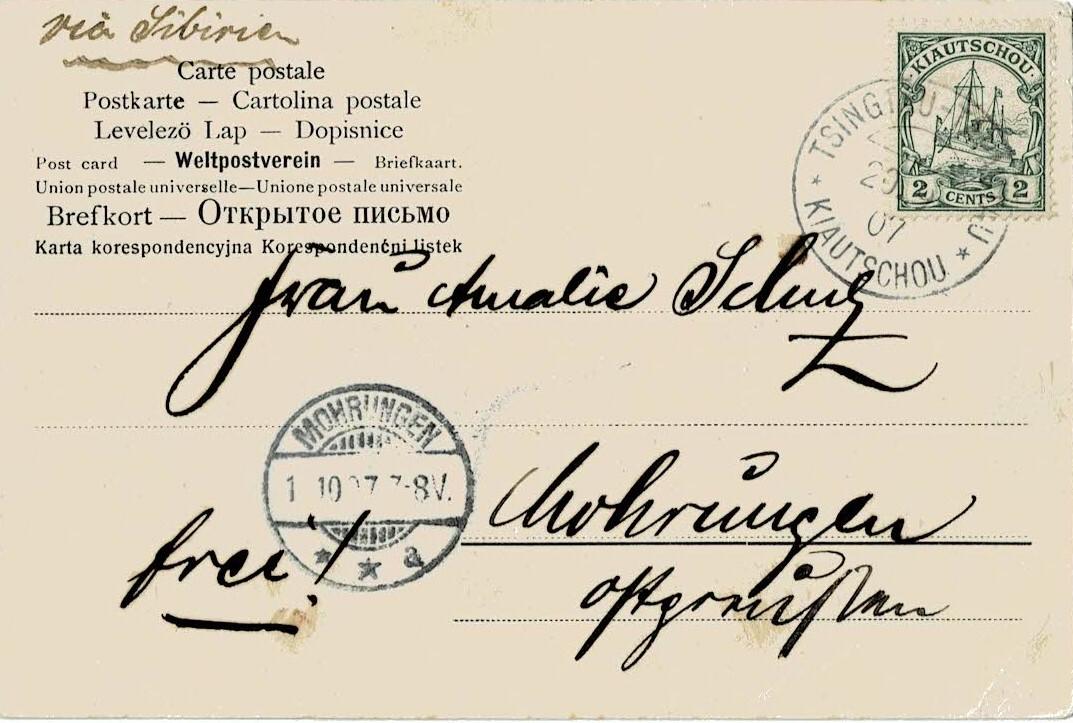 via Sibirien
Carte postale
Postkarte — Cartolina postale
Levelező Lap — Dopisnice
Post card — Weltpostverein — Briefkaart.
Union postale universelle—Unione postale universale
Brefkort — Открытое письмо
Karta korespondencyjna Korespondenćni listek
KIAUTSCHOU
2 CENTS 2
TSINGTAU-
07
* KIAUTSCHOU *
Frau Amalie Schulz
MOHRUNGEN
1 10 07 7-8V.
* * a
Mohrungen
frei!
Ostpreußen